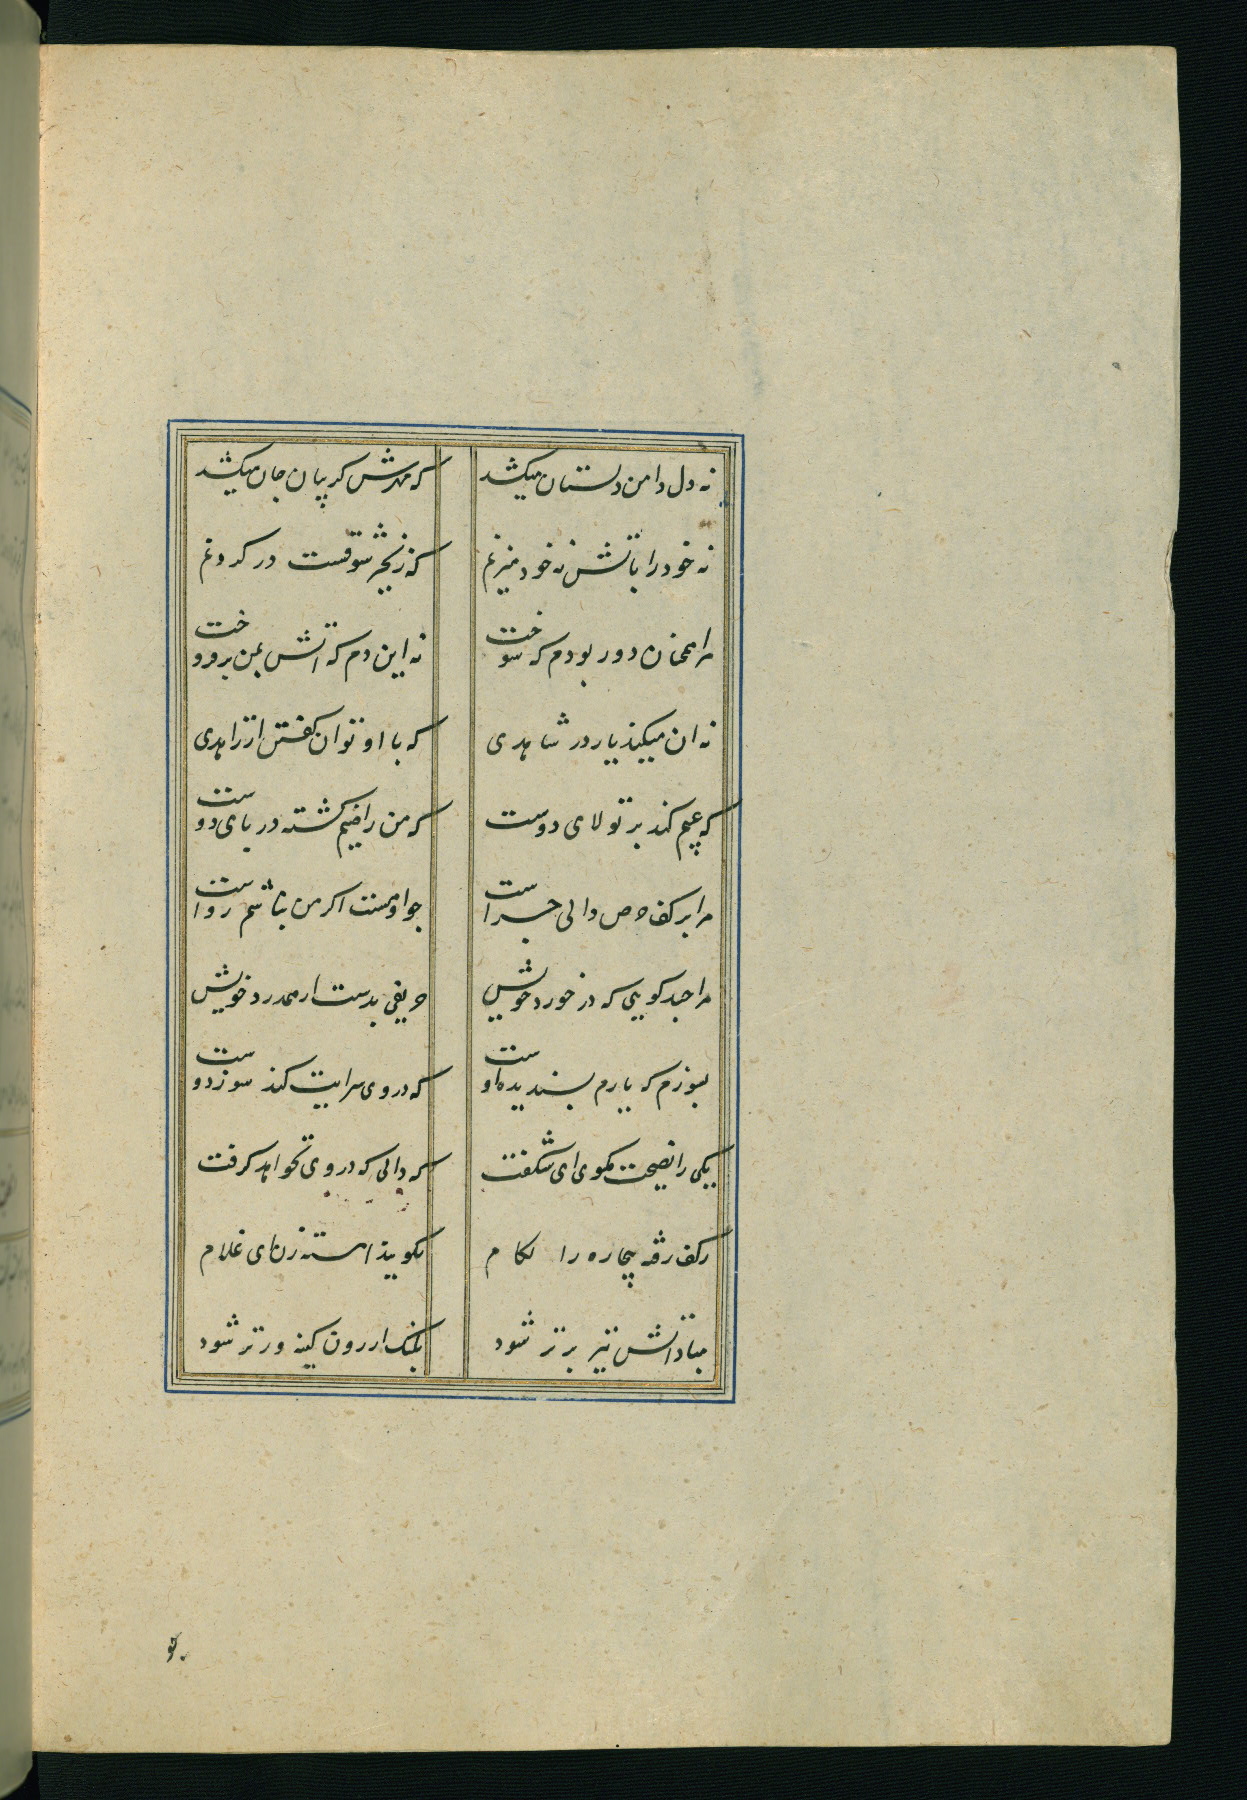 نه دل دامن دلستان میکشد که مهرش کریبان جان میکشد
نه خود را باتش نه خود میزنم که زنجیر شوقست در کردنم
مرا همچنان دور بودم که سوخت نه این دم که اتش بمن برفروخت
نه ان میکند یار در شاهدی که با او توان کفتن از زاهدی
که عیبم کند بر تولای دوست که من راضیم کشته در پای دوست
مرا بر تلف حرص دانی چراست چو او هست اکر من نباشم رواست
مرا چند کویی که در خورد خویش حریفی بدست ار همدرد خویش
بسوزم که یارم پسندیده اوست که در وی سرایت کند سوز دوست
یکی را نصیحت مکوی ای شکفت که دانی که در وی نخواهد کرفت
ز کف رفته بیچاره را لکام نکویند اهسته ران ای غلام
بباد اتش تیز برتر شود پلنک از زدن کینه ورتر شود